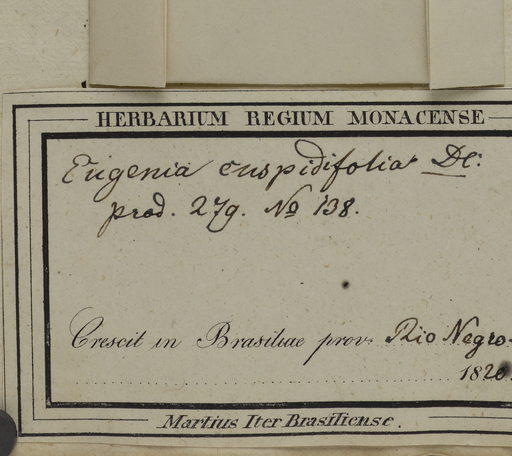 HERBARIUM REGIUM MONACENSE
Eugenia cuspidifolia DC:
prod. 279. No 138.
Crescit in Brasiliae prov. Rio Negro.
1820.
Martius Iter Brasiliense.